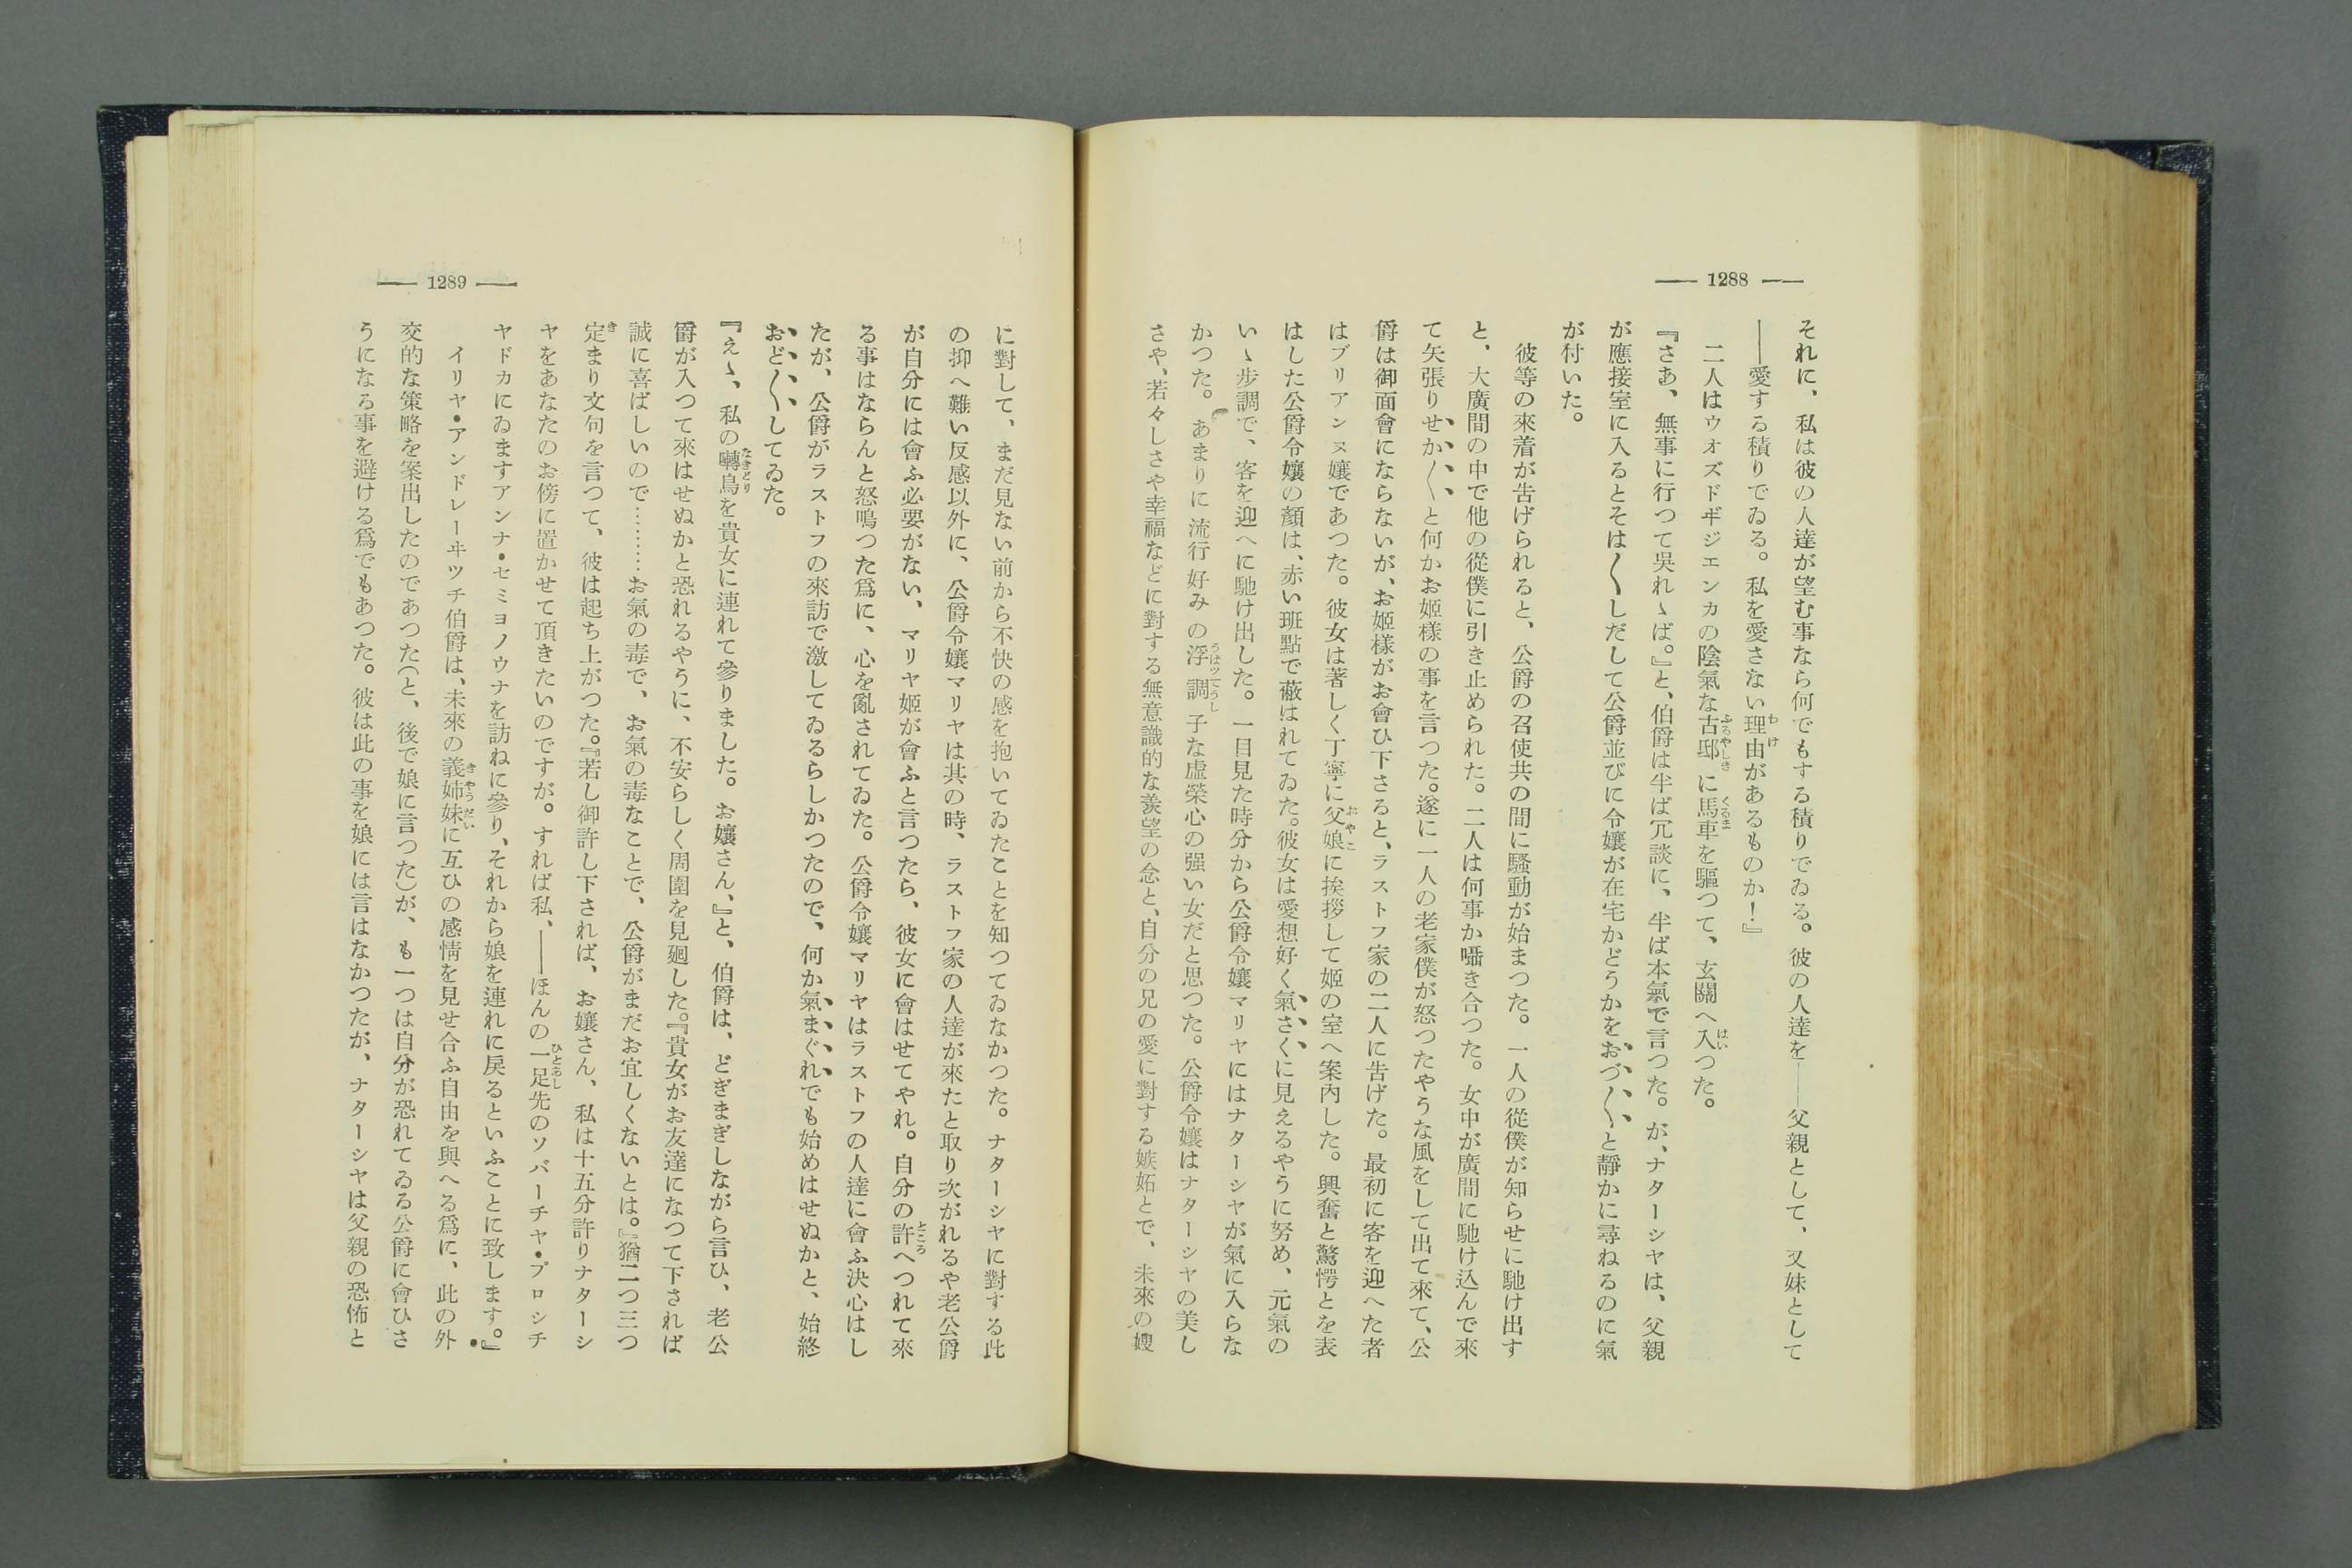 — 1288 —
それに、私は彼の人達が望む事なら何でもする積りでゐる。彼の人達を——父親として、又妹として
——愛する積りでゐる。私を愛さない理由があるものか！』
二人はウオズドヰジエンカの陰氣な古邸に馬車を驅つて、玄關へ入つた。
『さあ、無事に行つて吳れゝば。』と、伯爵は半ば冗談に、半ば本氣で言つた。が、ナターシヤは、父親
が應接室に入るとそは〱しだして公爵並びに令孃が在宅かどうかをおづ〱と靜かに尋ねるのに氣
が付いた。
彼等の來着が告げられると、公爵の召使共の間に騷動が始まつた。一人の從僕が知らせに馳け出す
と、大廣間の中で他の從僕に引き止められた。二人は何事か囁き合つた。女中が廣間に馳け込んで來
て矢張りせか〱と何かお姬樣の事を言つた。遂に一人の老家僕が怒つたやうな風をして出て來て、公
爵は御面會にならないが、お姬樣がお會ひ下さると、ラストフ家の二人に告げた。最初に客を迎へた者
はブリアンヌ孃であつた。彼女は著しく丁寧に父娘に挨拶して姬の室へ案内した。興奮と驚愕とを表
はした公爵令孃の顏は、赤い班點で蔽はれてゐた。彼女は愛想好く氣さくに見えるやうに努め、元氣の
いゝ步調で、客を迎へに馳け出した。一目見た時分から公爵令孃マリヤにはナターシヤが氣に入らな
かつた。あまりに流行好みの浮調子な虛榮心の强い女だと思つた。公爵令孃はナターシヤの美し
さや、若々しさや幸福などに對する無意識的な羨望の念と、自分の兄の愛に對する嫉妬とで、未來の嫂
— 1289 —
に對して、まだ見ない前から不快の感を抱いてゐたことを知つてゐなかつた。ナターシヤに對する此
の抑へ難い反感以外に、公爵令孃マリヤは其の時、ラストフ家の人達が來たと取り次がれるや老公爵
が自分には會ふ必要がない、マリヤ姬が會ふと言つたら、彼女に會はせてやれ。自分の許へつれて來
る事はならんと怒鳴つた爲に、心を亂されてゐた。公爵令孃マリヤはラストフの人達に會ふ決心はし
たが、公爵がラストフの來訪で激してゐるらしかつたので、何か氣まぐれでも始めはせぬかと、始終
おど〱してゐた。
『えゝ、私の囀鳥を貴女に連れて參りました。お孃さん、』と、伯爵は、どぎまぎしながら言ひ、老公
爵が入つて來はせぬかと恐れるやうに、不安らしく周圍を見廻した。『貴女がお友達になつて下されば
誠に喜ばしいので………お氣の毒で、お氣の毒なことで、公爵がまだお宜しくないとは。』猶二つ三つ
定まり文句を言つて、彼は起ち上がつた。『若し御許し下されば、お孃さん、私は十五分許りナターシ
ヤをあなたのお傍に置かせて頂きたいのですが。すれば私、——ほんの一足先のソバーチヤ・プロシチ
ヤドカにゐますアンナ・セミヨノウナを訪ねに參り、それから娘を連れに戾るといふことに致します。』
イリヤ・アンドレーヰツチ伯爵は、未來の義姉妹に互ひの感情を見せ合ふ自由を與へる爲に、此の外
交的な策略を案出したのであつた（と、後で娘に言つた）が、も一つは自分が恐れてゐる公爵に會ひさ
うになる事を避ける爲でもあつた。彼は此の事を娘には言はなかつたが、ナターシヤは父親の恐怖と